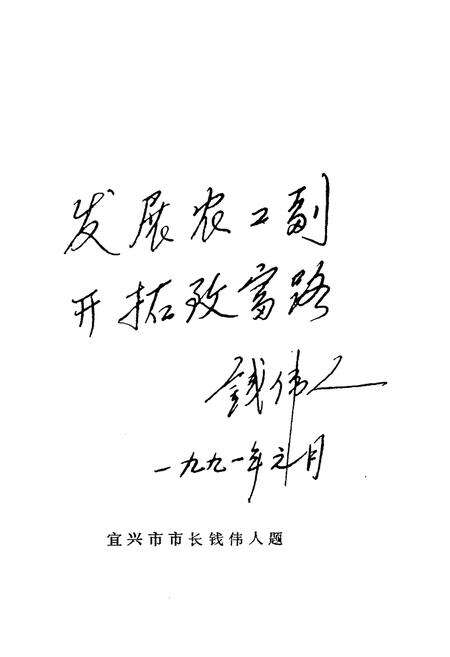 发展农工副
开拓致富路
钱伟人
一九九一年元月
宜兴市市长钱伟人题